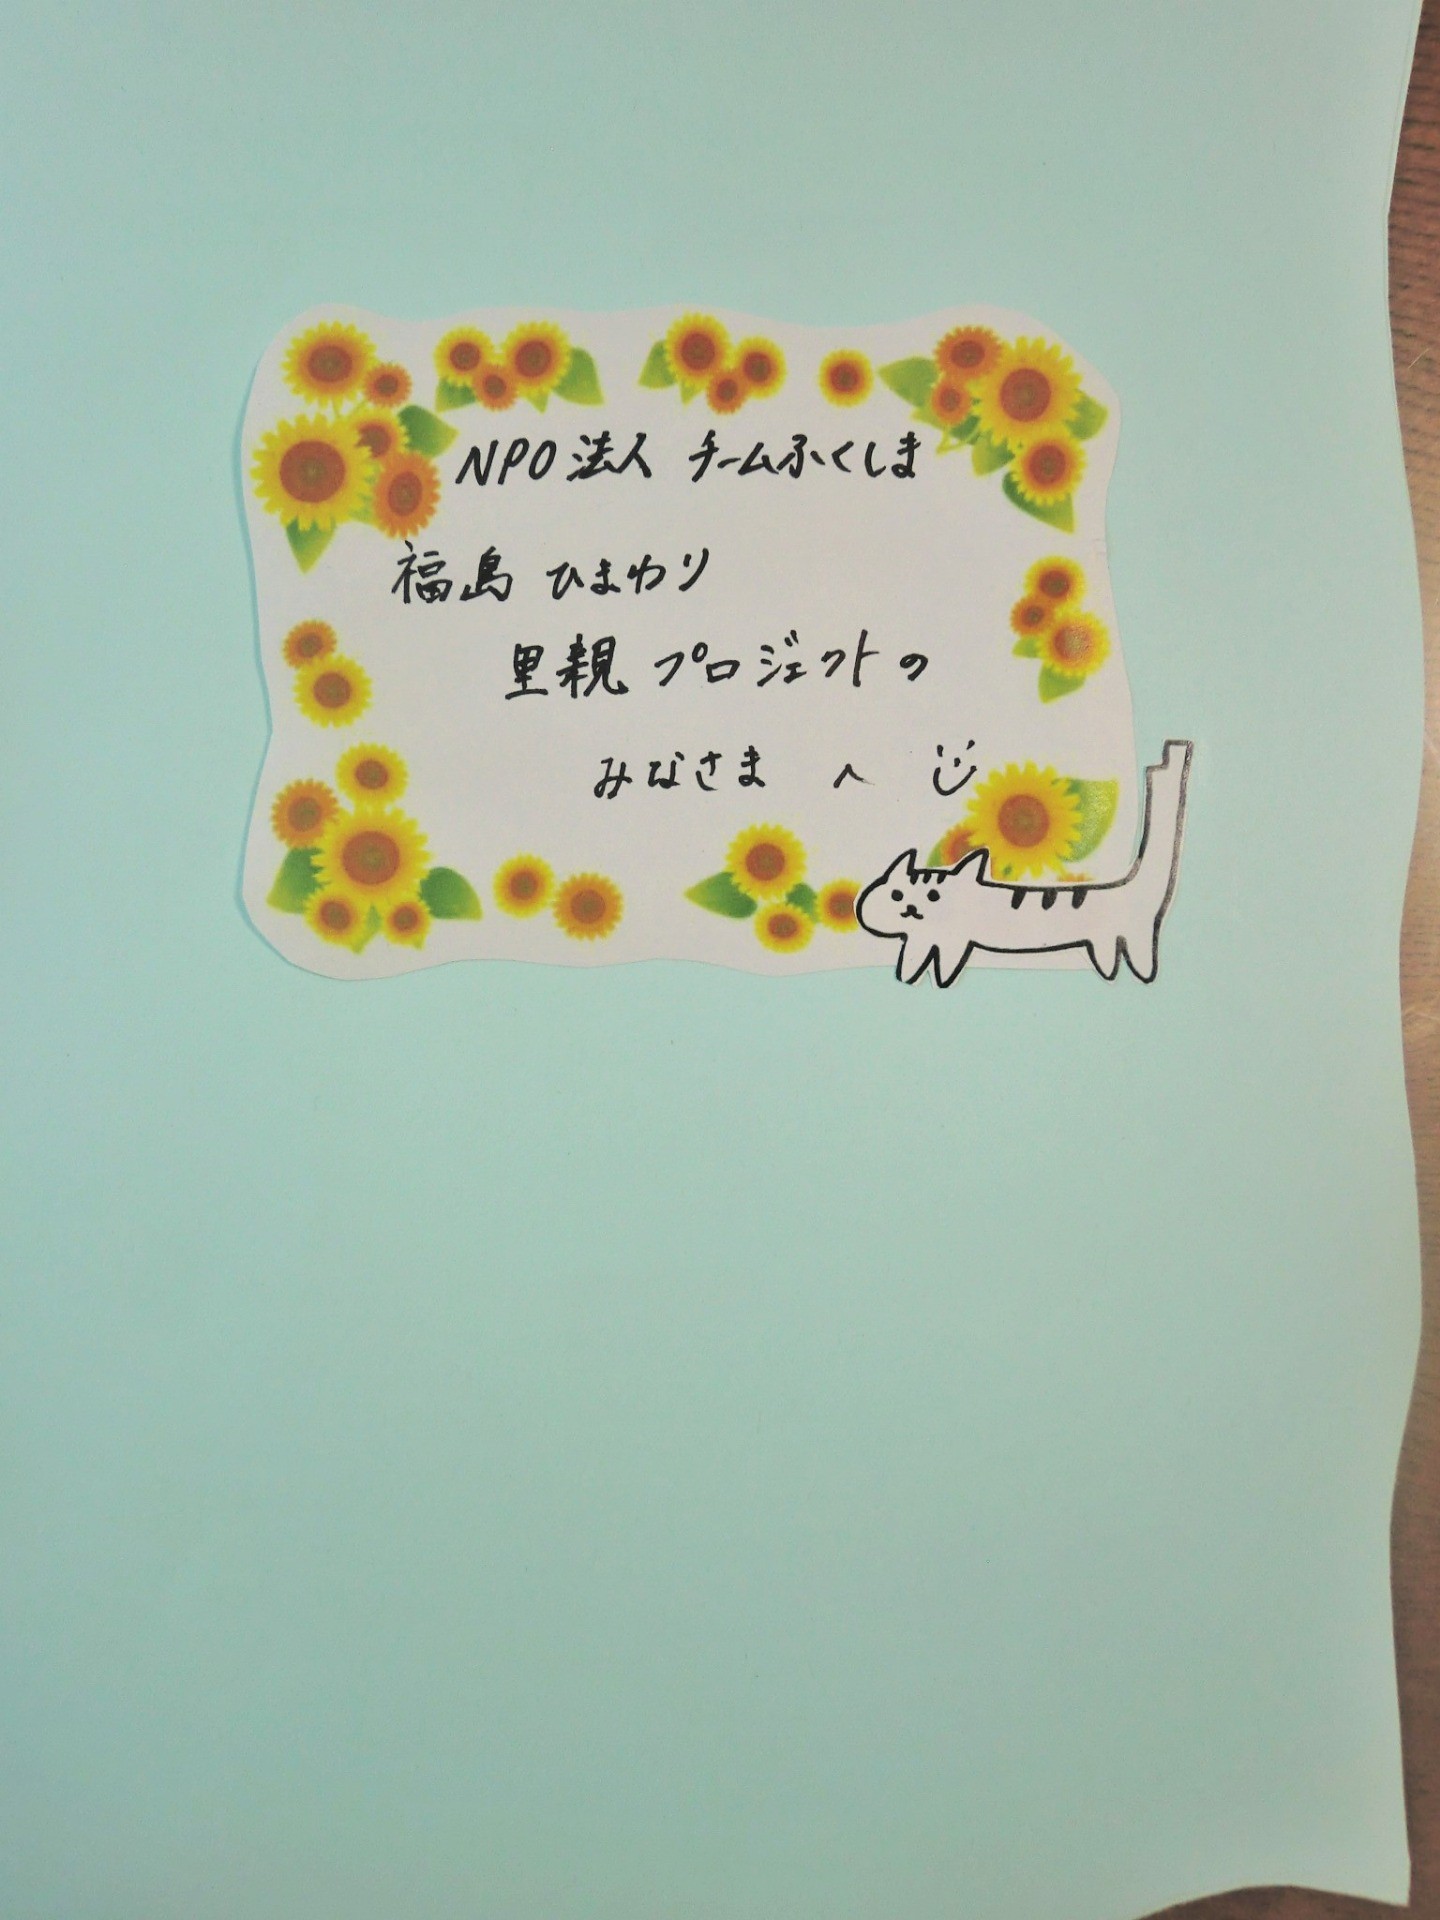 NPO法人 チームふくしま
福島 ひまわり
里親 プロジェクトの
みなさま へ